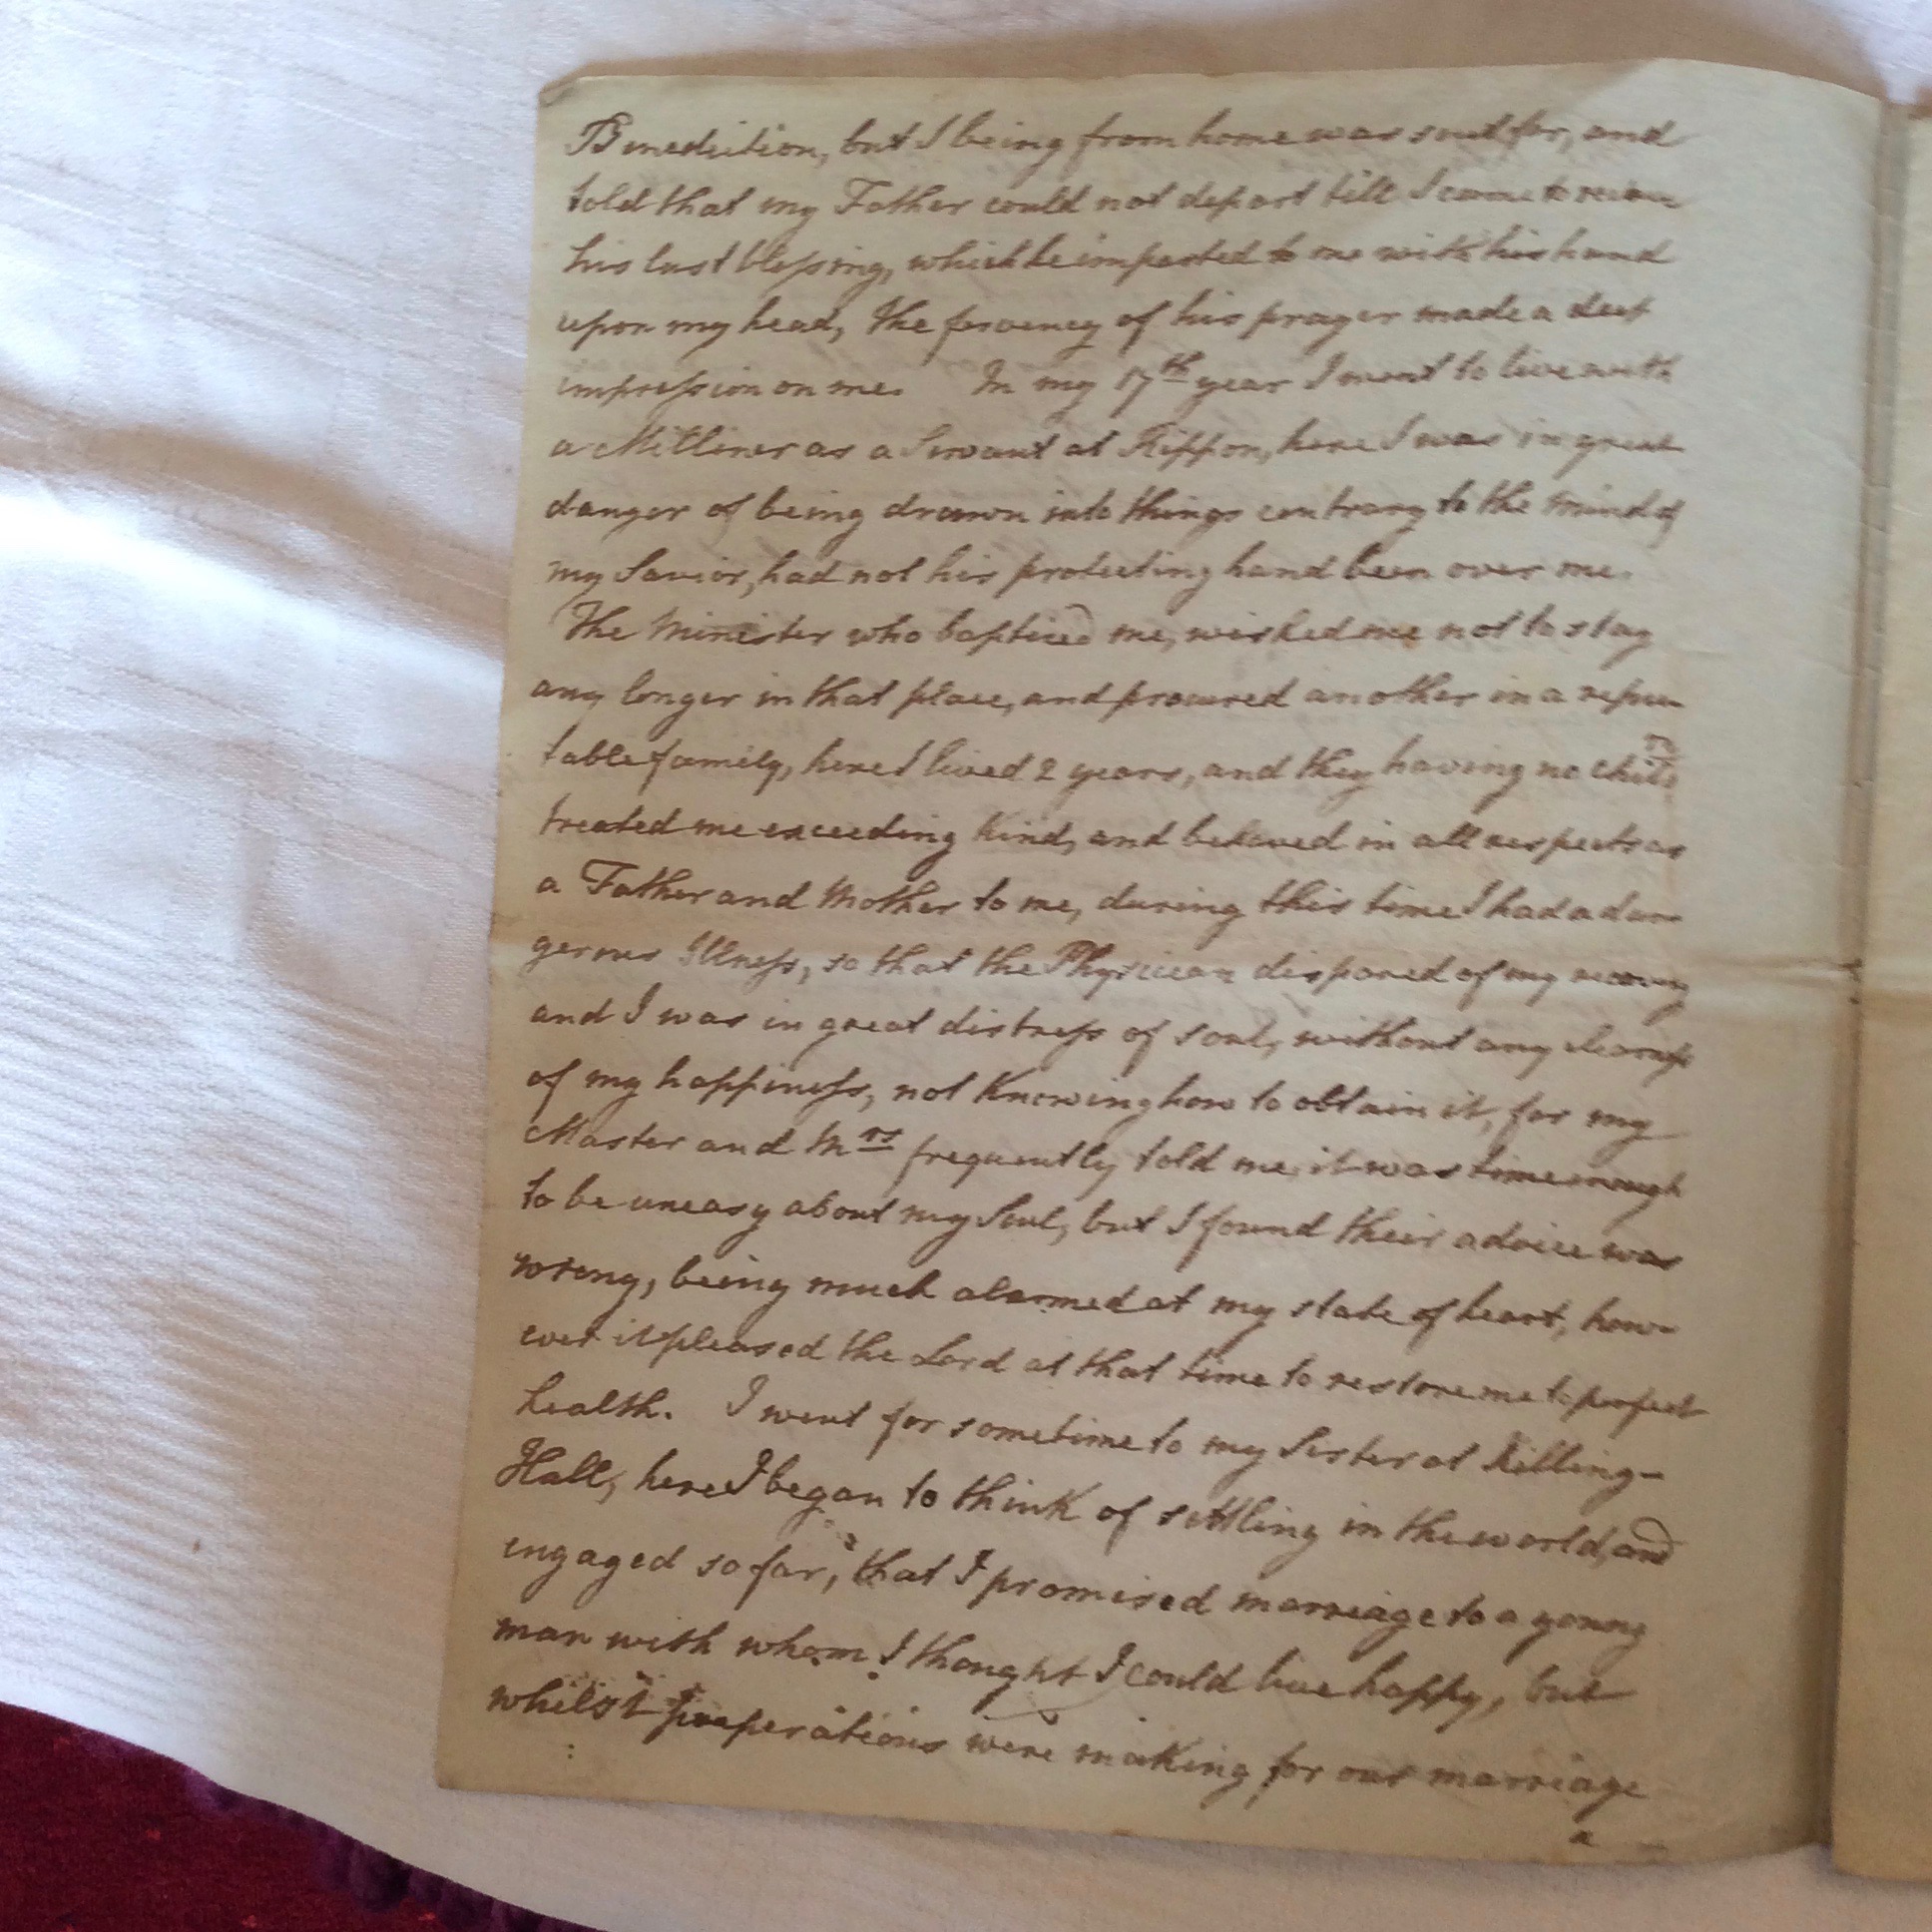 Benediction, but I being from home was sent for, and
told that my Father could not depart till I came to receive
his last blessing, which he imparted to me with his hand
upon my head, the fervency of his prayer made a deep
impression on me. In my 17th year I went to live with
a Milliner as a Servant at Rippon, here I was in great
danger of being drawn into things contrary to the mind of
my Savior, had not his protecting hand been over me.
The Minister who baptized me, wished me not to stay
any longer in that place, and procured another in a repu-
table family, here I lived 2 years, and they having no childn
treated me exceeding kind, and behaved in all respects as
a Father and Mother to me, during this time I had a dan-
gerous Illness, so that the Physician dispared of my recovery
and I was in great distress of soul, without any clearness
of my happiness, not knowing how to obtain it, for my
Master and Mrs frequently told me, it was time enough
to be uneasy about my Soul, but I found their advice was
wrong, being much alarmed at my state of heart, how-
ever it pleased the Lord at that time to restore me to perfect
health. I went for sometime to my Sister at Killing-
Hall, here I began to think of settling in the world, and
engaged so far, that I promised marriage to a young
man with whom I thought I could live happy, but
whilst preperations were making for our marriage
a